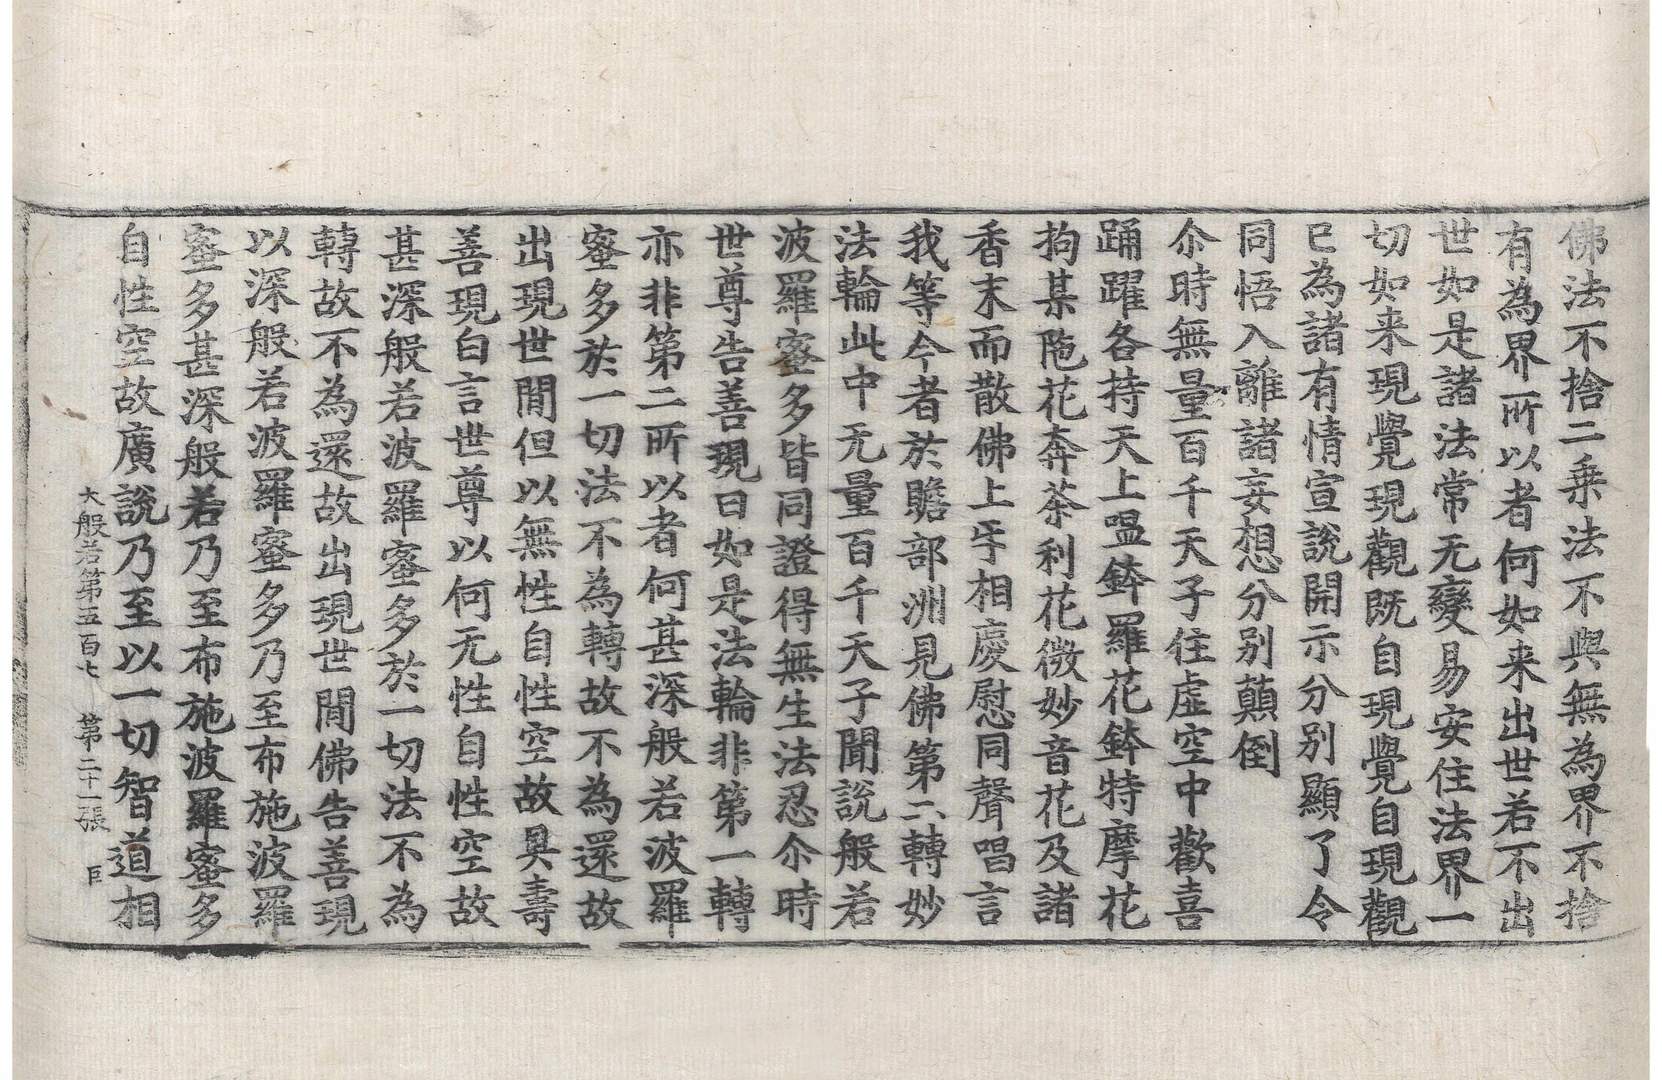 佛法不捨二乗法不與無為界不捨
有為界所以者何如来出世若不出
世如是諸法常无變易安住法界一
切如来現覺現觀既自現覺自現觀
已為諸有情宣說開示分別顯了令
同悟入離諸妄想分別顛倒
尒時無量百千天子住虛空中歡喜
踊躍各持天上嗢鉢羅花鉢特摩花
拘某陁花奔荼利花微妙音花及諸
香末而散佛上㸦相慶慰同聲唱言
我等今者於贍部洲見佛第二轉妙
法輪此中无量百千天子聞說般若
波羅蜜多皆同證得無生法忍尒時
世尊告善現曰如是法輪非第一轉
亦非第二所以者何甚深般若波羅
蜜多於一切法不為轉故不為還故
出現世間但以無性自性空故具壽
善現白言世尊以何无性自性空故
甚深般若波羅蜜多於一切法不為
轉故不為還故出現世間佛告善現
以深般若波羅蜜多乃至布施波羅
蜜多甚深般若乃至布施波羅蜜多
自性空故廣說乃至以一切智道相
大般若第五百七　第二十一張　巨